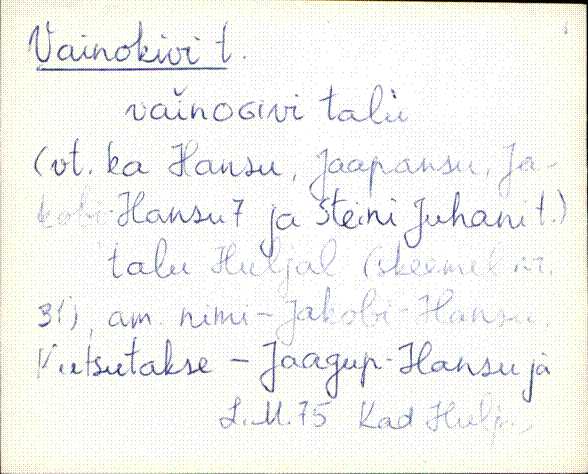 Vainokivi t.
vaĭnoGivi talù
(vt. ka Hansu, Jaapansu, Ja-
kobi-Hansu7 ja Steini Juhani t.)
talu Huljal (skeemil nr.
31), am. nimi - Jakobi-Hansu.
Kutsutakse - Jaagup-Hansu ja
L.M.75 Kad Hulja